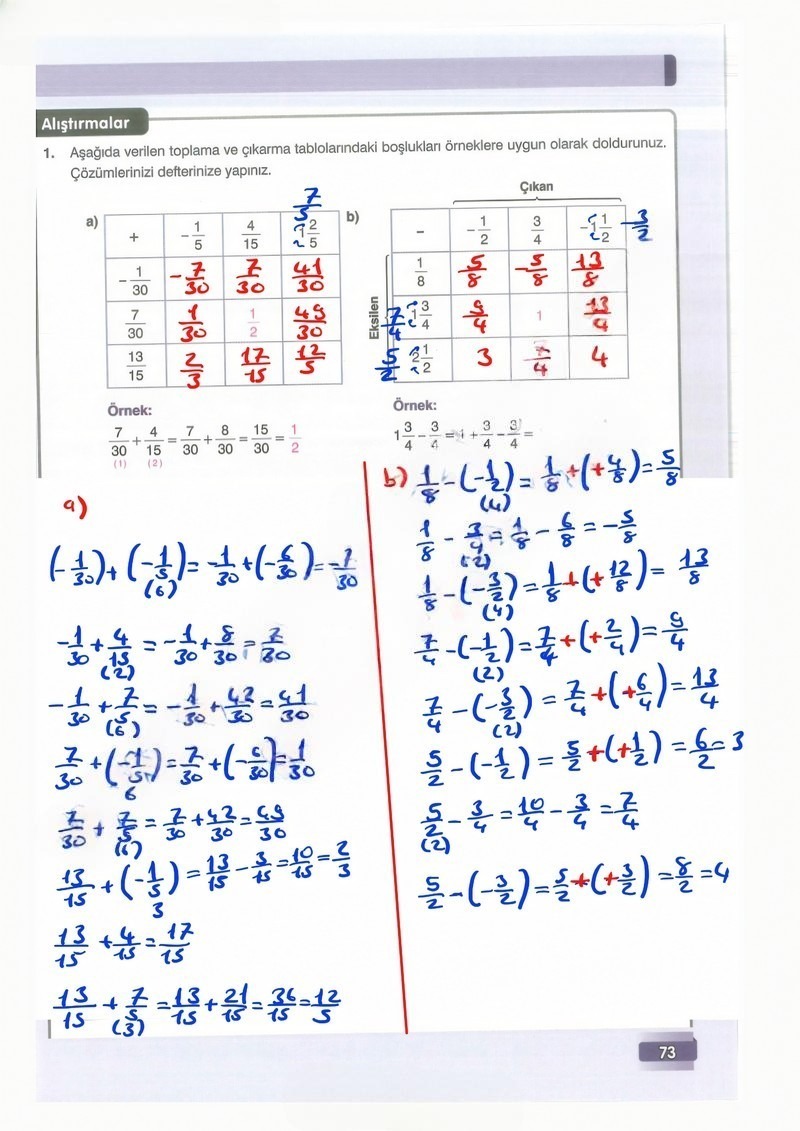 Alıştırmalar
1. Aşağıda verilen toplama ve çıkarma tablolarındaki boşlukları örneklere uygun olarak doldurunuz.
Çözümlerinizi defterinize yapınız.
a)
7/5
+ | -1/5 | 4/15 | 1 2/5
-1/30 | -7/30 | 7/30 | 41/30
7/30 | 1/30 | 1/2 | 49/30
13/15 | 2/3 | 17/15 | 12/5
b)
Çıkan
Eksilen
- | -1/2 | 3/4 | -1 1/2 -3/2
1/8 | 5/8 | -5/8 | 13/8
7/4 1 3/4 | 9/4 | 1 | 13/4
5/2 2 1/2 | 3 | 7/4 | 4
Örnek:
7/30 + 4/15 = 7/30 + 8/30 = 15/30 = 1/2
(1) (2)
Örnek:
1 3/4 - 3/4 = 1 + 3/4 - 3/4 =
a)
(-1/30) + (-1/5) = -1/30 + (-6/30) = -7/30
(6)
-1/30 + 4/15 = -1/30 + 8/30 = 7/30
(2)
-1/30 + 7/5 = -1/30 + 42/30 = 41/30
(6)
7/30 + (-1/5) = 7/30 + (-6/30) = 1/30
6
7/30 + 7/5 = 7/30 + 42/30 = 49/30
(6)
13/15 + (-1/5) = 13/15 - 3/15 = 10/15 = 2/3
3
13/15 + 4/15 = 17/15
13/15 + 7/5 = 13/15 + 21/15 = 36/15 = 12/5
(3)
b) 1/8 - (-1/2) = 1/8 + (+4/8) = 5/8
(4)
1/8 - 3/4 = 1/8 - 6/8 = -5/8
(2)
1/8 - (-3/2) = 1/8 + (+12/8) = 13/8
(4)
7/4 - (-1/2) = 7/4 + (+2/4) = 9/4
(2)
7/4 - (-3/2) = 7/4 + (+6/4) = 13/4
(2)
5/2 - (-1/2) = 5/2 + (+1/2) = 6/2 = 3
5/2 - 3/4 = 10/4 - 3/4 = 7/4
(2)
5/2 - (-3/2) = 5/2 + (+3/2) = 8/2 = 4
73